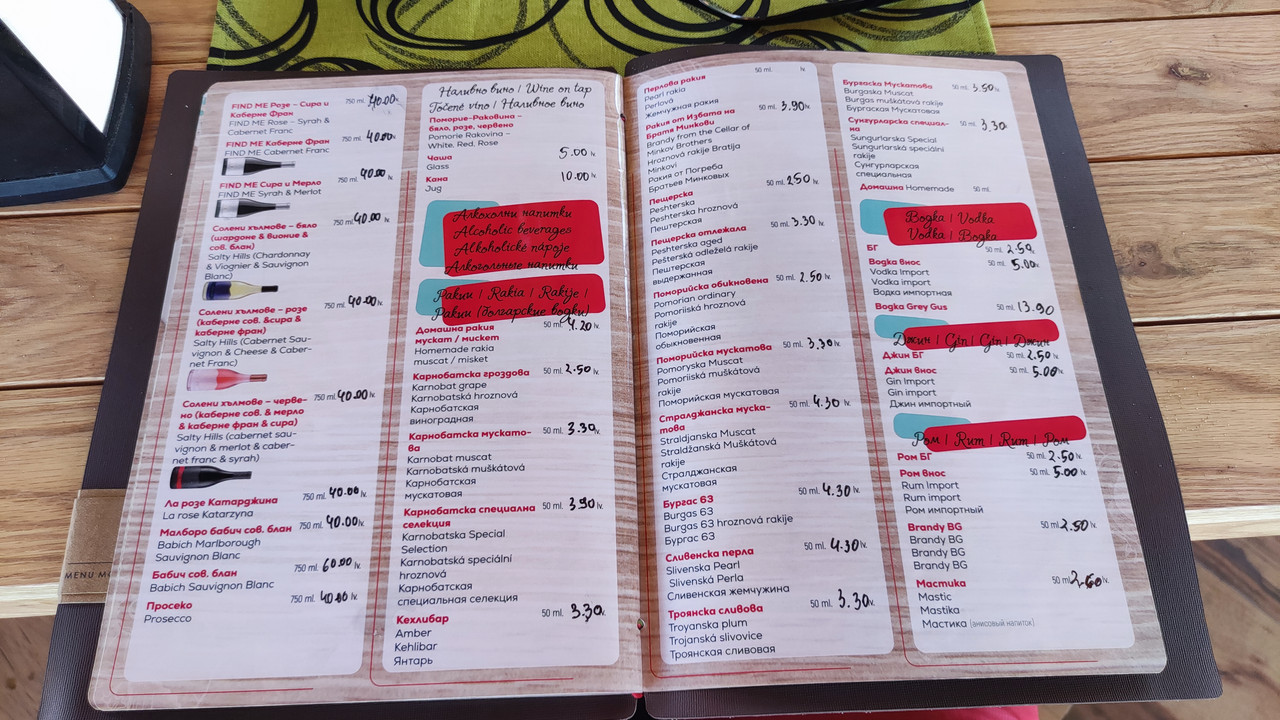 FIND ME Розе – Сира и
Каберне Фран
750 ml. 40.00 lv.
FIND ME Rose – Syrah &
Cabernet Franc
FIND ME Каберне Фран
750 ml. 40.00 lv.
FIND ME Cabernet Franc
FIND ME Сира и Мерло
750 ml. 40.00 lv.
FIND ME Syrah & Merlot
Солени хълмове – бяло
750 ml. 40.00 lv.
(шардоне & вионие &
сов. блан)
Salty Hills (Chardonnay
& Viognier & Sauvignon
Blanc)
Солени хълмове – розе
750 ml. 40.00 lv.
(каберне сов. &сира &
каберне фран)
Salty Hills (Cabernet Sau-
vignon & Cheese & Caber-
net Franc)
Солени хълмове – черве-
750 ml. 40.00 lv.
но (каберне сов. & мерло
& каберне фран & сира)
Salty Hills (cabernet sau-
vignon & merlot & caber-
net franc & syrah)
Ла розе Катарджина
750 ml. 40.00 lv.
La rose Katarzyna
Малборо бабич сов. блан
750 ml. 40.00 lv.
Babich Marlborough
Sauvignon Blanc
Бабич сов. блан
750 ml. 60.00 lv.
Babich Sauvignon Blanc
Просеко
750 ml. 40.00 lv.
Prosecco
MENU
Наливно вино | Wine on tap
Točené víno | Наливное вино
Поморие-Раковина –
бяло, розе, червено
Pomorie Rakovina –
White, Red, Rose
Чаша
5.00 lv.
Glass
Кана
10.00 lv.
Jug
Алкохолни напитки
Alcoholic beverages
Alkoholické nápoje
Алкогольные напитки
Ракии | Rakia | Rakije |
Ракии (болгарские водки)
Домашна ракия
50 ml. 4.20 lv.
мускат / мискет
Homemade rakia
muscat / misket
Карнобатска гроздова
50 ml. 2.50 lv.
Karnobat grape
Karnobatská hroznová
Карнобатская
виноградная
Карнобатска мускато-
50 ml. 3.30 lv.
ва
Karnobat muscat
Karnobatská muškátová
Карнобатская
мускатовая
Карнобатска специална
50 ml. 3.90 lv.
селекция
Karnobatska Special
Selection
Karnobatská speciální
hroznová
Карнобатская
специальная селекция
Кехлибар
50 ml. 3.30 lv.
Amber
Kehlibar
Янтарь
Перлова ракия
50 ml. lv.
Pearl rakia
Perlová
Жемчужная ракия
Ракия от Избата на
50 ml. 3.90 lv.
Братя Минкови
Brandy from the Cellar of
Minkov Brothers
Hroznová rakije Bratija
Minkovi
Ракия от Погреба
Братьев Минковых
Пещерска
50 ml. 2.50 lv.
Peshterska
Peshterska hroznová
Пештерская
Пещерска отлежала
50 ml. 3.30 lv.
Peshterska aged
Pešterská odleželá rakije
Пештерская
выдержанная
Поморийска обикновена
50 ml. 2.50 lv.
Pomorian ordinary
Pomoriiská hroznová
rakije
Поморийская
обыкновенная
Поморийска мускатова
50 ml. 3.30 lv.
Pomoryska Muscat
Pomoriiská muškátová
rakije
Поморийская мускатовая
Стралджанска муска-
50 ml. 4.30 lv.
това
Straldjanska Muscat
Straldžanská Muškátová
rakije
Стралджанская
мускатовая
Бургас 63
50 ml. 4.30 lv.
Burgas 63
Burgas 63 hroznová rakije
Бургас 63
Сливенска перла
50 ml. 4.30 lv.
Slivenska Pearl
Slivenská Perla
Сливенская жемчужина
Троянска сливова
50 ml. 3.30 lv.
Troyanska plum
Trojanská slivovice
Троянская сливовая
Бургаска Мускатова
50 ml. 3.50 lv.
Burgaska Muscat
Burgas muškátová rakije
Бургаская Мускатовая
Сунгурларска специал-
50 ml. 3.30
на
Sungurlarska Special
Sungurlarská speciální
rakije
Сунгурларская
специальная
Домашна Homemade
50 ml.
Водка | Vodka
Vodka | Водка
БГ
50 ml. 2.50 lv.
Водка внос
50 ml. 5.00 lv.
Vodka Import
Vodka import
Водка импортная
Водка Grey Gus
50 ml. 13.90
Джин | Gin | Gin | Джин
Джин БГ
50 ml. 2.50 lv.
Джин внос
50 ml. 5.00 lv.
Gin Import
Gin import
Джин импортный
Ром | Rum | Rum | Ром
Ром БГ
50 ml. 2.50 lv.
Ром внос
50 ml. 5.00 lv.
Rum Import
Rum import
Ром импортный
Brandy BG
50 ml. 2.50 lv.
Brandy BG
Brandy BG
Brandy BG
Мастика
50 ml. lv.
Mastic
Mastika
Мастика (анисовый напиток)